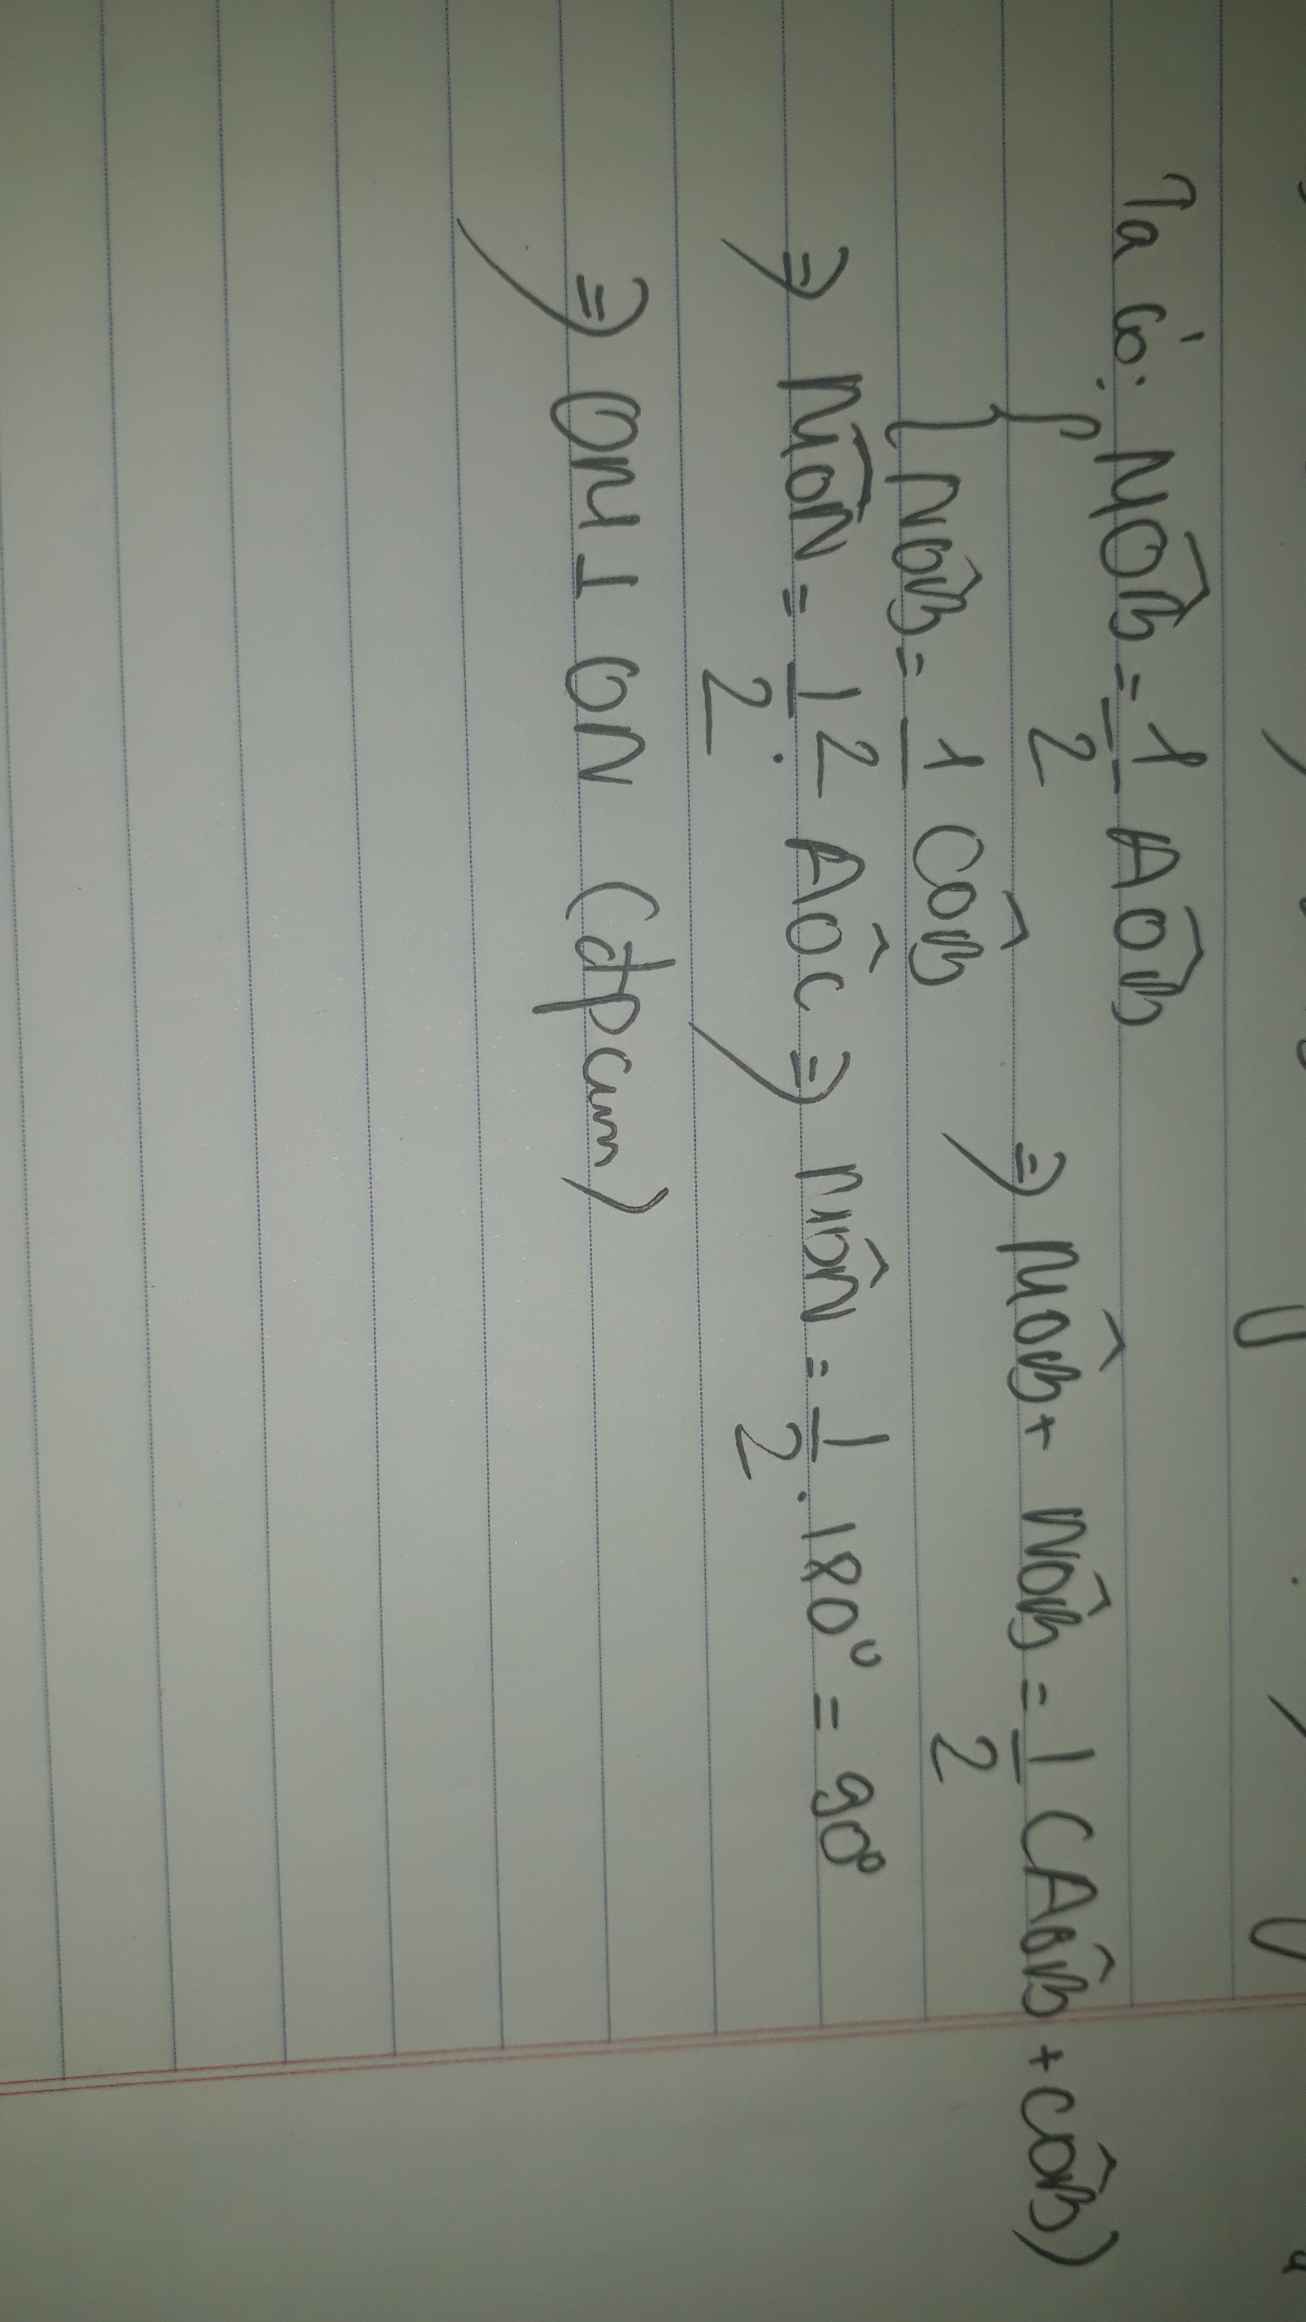 Ta có: { MÔB = 1/2 AÔB
{ NÔB = 1/2 CÔB ⇒ MÔB + NÔB = 1/2 (AÔB + CÔB)
⇒ MÔN = 1/2 . 2 AÔC ⇒ MÔN = 1/2 . 180° = 90°
⇒ OM ⊥ ON (đpcm)